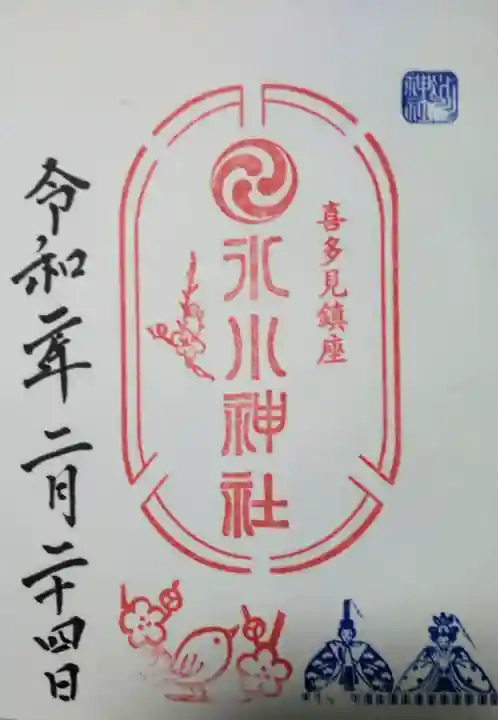 喜多見鎮座
氷川神社
令和二年二月二十四日